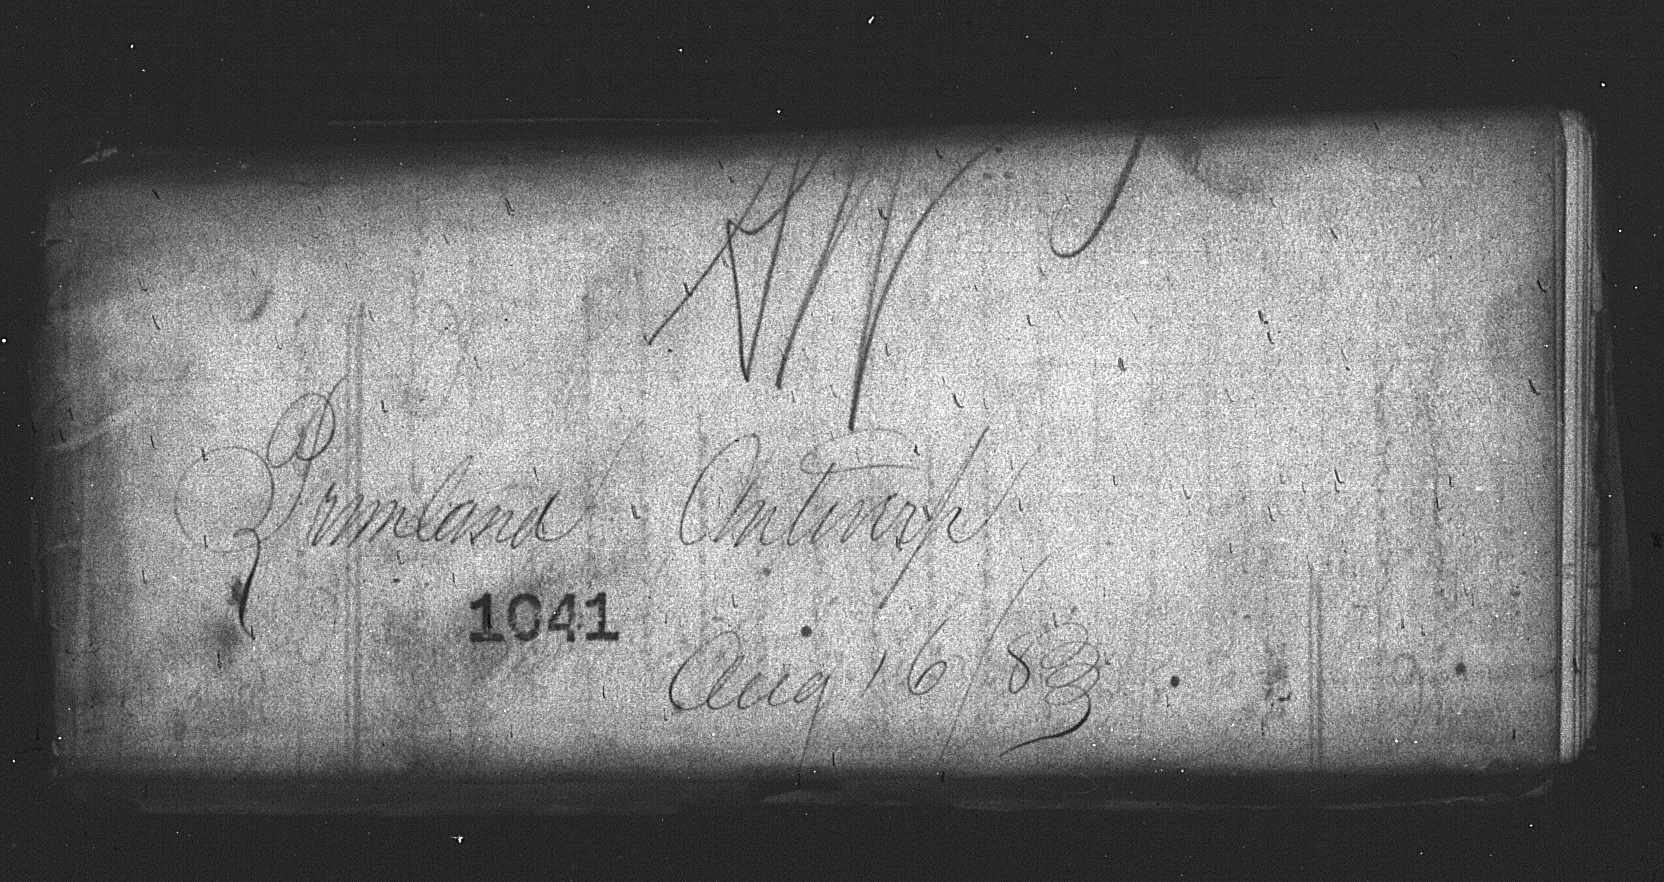 Pennland Antwerp
1041
Aug 16/83